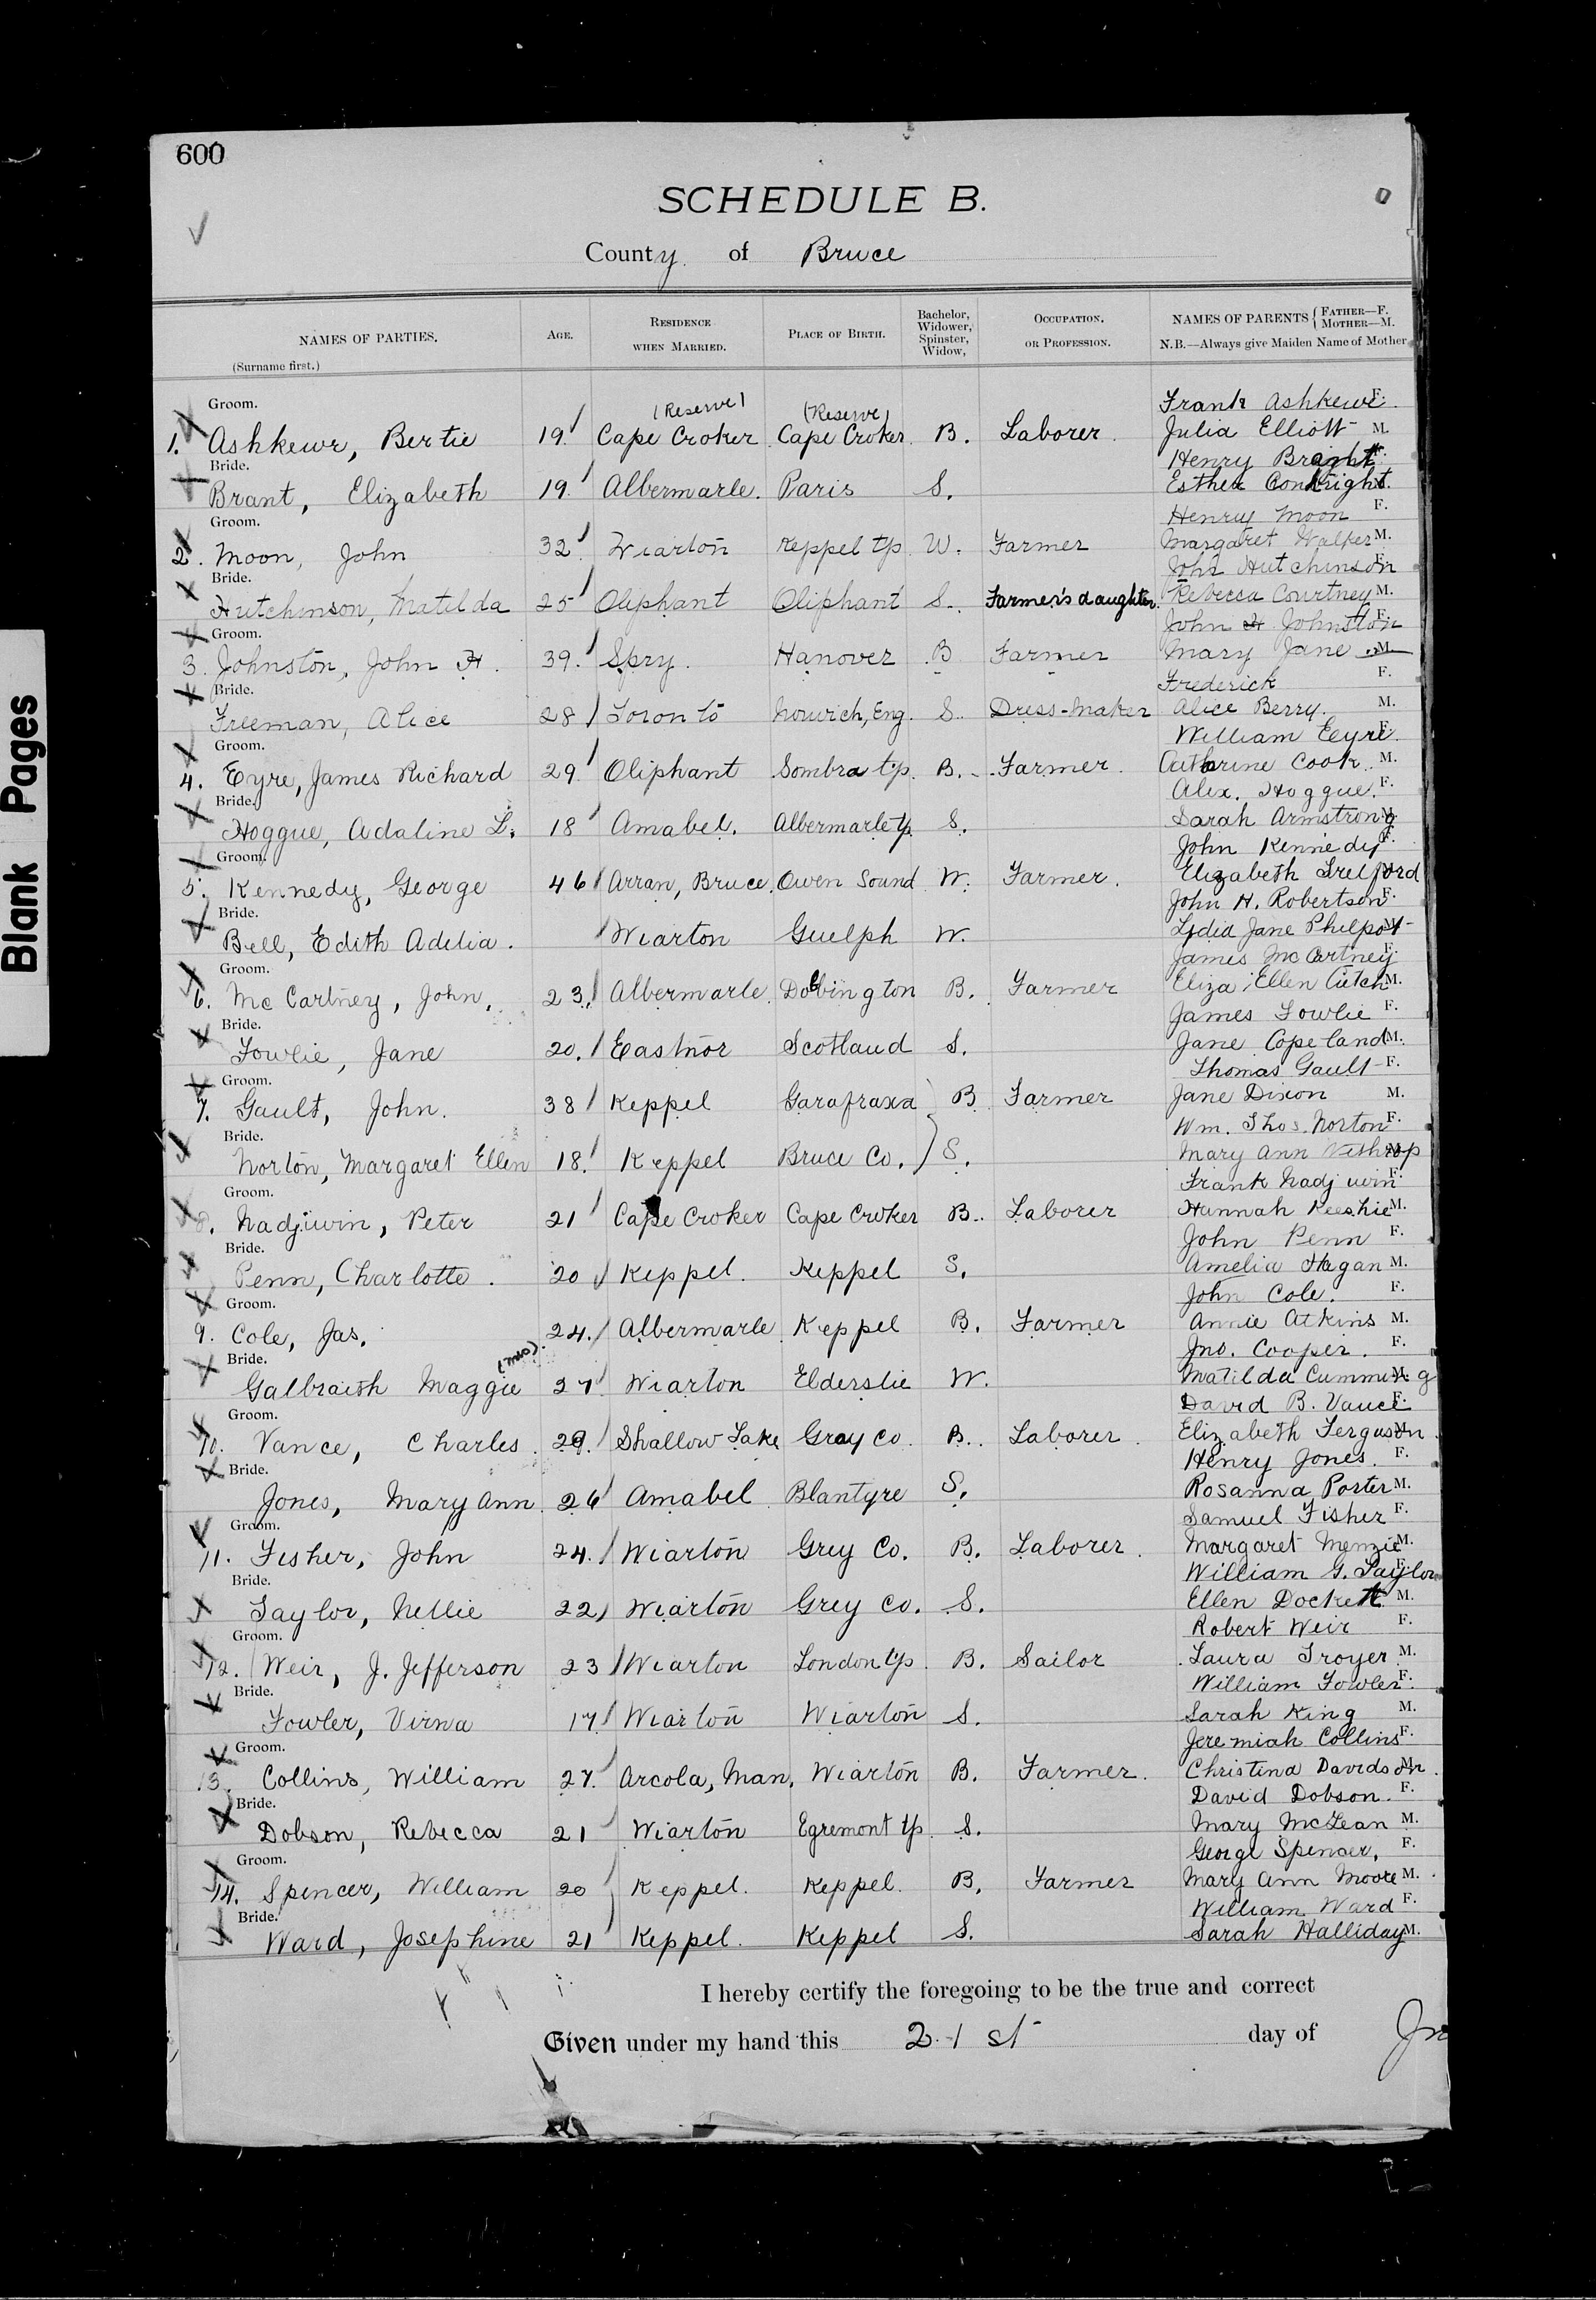 600
SCHEDULE B.
County of Bruce
NAMES OF PARTIES.
(Surname first.)
AGE.
RESIDENCE
WHEN MARRIED.
PLACE OF BIRTH.
Bachelor,
Widower,
Spinster,
Widow,
OCCUPATION.
OR PROFESSION.
NAMES OF PARENTS { FATHER—F.
MOTHER—M.
N.B.—Always give Maiden Name of Mother
Groom. (Reserve) (Reserve) Frank Ashkewe F.
1. Ashkewe, Bertie 19. Cape Croker Cape Croker. B. Laborer. Julia Elliott M.
Bride. Henry F.
Brant, Elizabeth 19. Albermarle. Paris S. Esther
Groom. Henry Moon F.
2. Moon, John 32 Wiarton Keppel tp. W. Farmer Margaret Walker M.
Bride. John Hutchinson F.
Hutchinson, Matilda 25 Oliphant Oliphant S. Farmer's daughter. Rebecca Courtney M.
Groom. John H Johnston F.
3. Johnston, John H. 39. Spry. Hanover B Farmer Mary Jane — M.
Bride. Frederick F.
Freeman, Alice 28 Toronto Norwich, Eng. S. Dress-maker Alice Berry. M.
Groom. William Eeyre. F.
4. Eyre, James Richard 29. Oliphant Sombra tp. B. Farmer. Catherine Cook M.
Bride. Alex. Hoggue. F.
Hoggue, Adaline L. 18 Amabel. Albermarle tp. S. Sarah Armstrong M.
Groom. John Kennedy F.
5. Kennedy, George 46 Arran, Bruce. Owen Sound W. Farmer. Elizabeth Trelford M.
Bride. John H. Robertson F.
Bell, Edith Adelia. Wiarton Guelph W. Lydia Jane Philpott M.
Groom. James McCartney F.
6. McCartney, John. 23. Albermarle Dobbington B. Farmer Eliza Ellen M.
Bride. James Fowlie F.
Fowlie, Jane 20. Eastnor Scotland S. Jane Copeland M.
Groom. Thomas Gault F.
7. Gault, John. 38 Keppel Garafraxa B Farmer Jane Dixon M.
Bride. Wm. Thos. Norton F.
Norton, Margaret Ellen 18. Keppel Bruce Co. S. Mary Ann M.
Groom. Frank Nadjiwin F.
8. Nadjiwin, Peter 21 Cape Croker Cape Croker B. Laborer Hannah Keeshie M.
Bride. John Penn F.
Penn, Charlotte. 20 Keppel. Keppel S. Amelia Hagan M.
Groom. John Cole. F.
9. Cole, Jas. 24. Albermarle Keppel B. Farmer Annie Atkins M.
Bride. (Mrs) Jno. Cooper. F.
Galbraith Maggie 27. Wiarton Elderslie W. Matilda Cumming M.
Groom. David B. Vance F.
10. Vance, Charles. 29. Shallow Lake Grey Co. B. Laborer. Elizabeth Ferguson M.
Bride. Henry Jones. F.
Jones, Mary Ann 26 Amabel Blantyre S. Rosanna Porter M.
Groom. Samuel Fisher F.
11. Fisher, John 24. Wiarton Grey Co. B. Laborer. Margaret Menzie M.
Bride. William G. Taylor F.
Taylor, Nellie 22 Wiarton Grey Co. S. Ellen Dockett M.
Groom. Robert Weir F.
12. Weir, J. Jefferson 23 Wiarton London tp. B. Sailor Laura Troyer M.
Bride. William Fowler. F.
Fowler, Virna 17. Wiarton Wiarton S. Sarah King M.
Groom. Jeremiah Collins F.
13. Collins, William 27. Arcola, Man. Wiarton B. Farmer. Christina Davidson M.
Bride. David Dobson. F.
Dobson, Rebecca 21 Wiarton Egremont tp. S. Mary McLean M.
Groom. George Spencer. F.
14. Spencer, William 20 Keppel. Keppel. B. Farmer Mary Ann Moore M.
Bride. William Ward F.
Ward, Josephine 21 Keppel. Keppel S. Sarah Halliday M.
I hereby certify the foregoing to be the true and correct
Given under my hand this 21st day of
Blank Pages